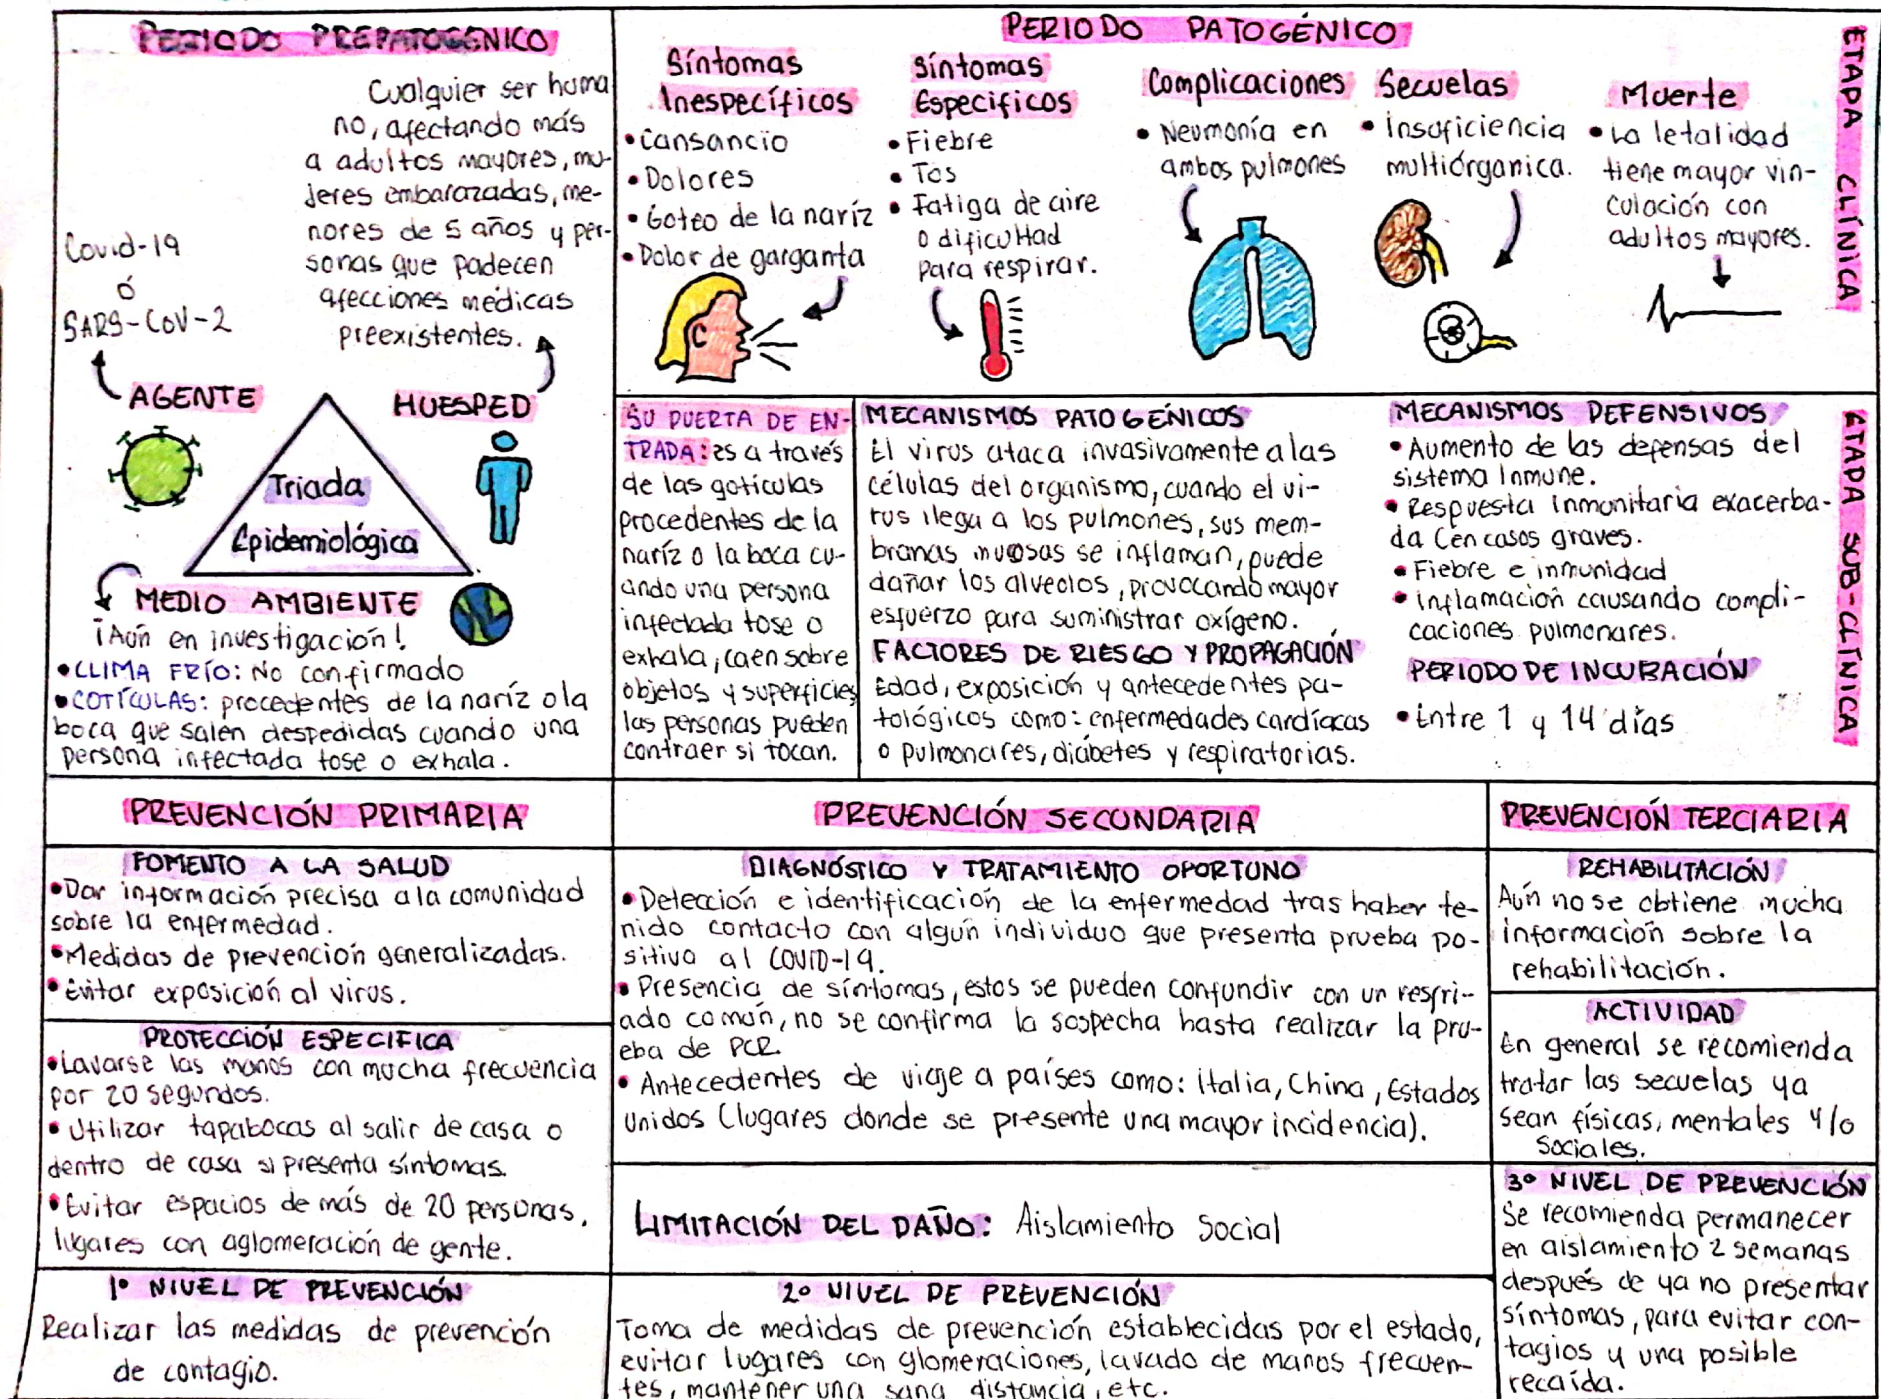 PERIODO PREPATOGÉNICO
Cualquier ser huma
no, afectando más
a adultos mayores, mu-
jeres embarazadas, me-
nores de 5 años y per-
sonas que padecen
afecciones médicas
preexistentes.
Covid-19
ó
SARS-CoV-2
AGENTE
HUESPED
Triada
Epidemiológica
MEDIO AMBIENTE
¡Aún en investigación!
•CLIMA FRÍO: No confirmado
•GOTÍCULAS: procedentes de la naríz o la
boca que salen despedidas cuando una
persona infectada tose o exhala.
PERIODO PATOGÉNICO
Síntomas
Inespecíficos
•Cansancio
•Dolores
•Goteo de la naríz
•Dolor de garganta
Síntomas
Especificos
•Fiebre
•Tos
•Fatiga de aire
o dificultad
para respirar.
Complicaciones
•Neumonía en
ambos pulmones
Secuelas
•Insuficiencia
multiórganica.
Muerte
•La letalidad
tiene mayor vin-
culación con
adultos mayores.
ETAPA CLÍNICA
SU PUERTA DE EN-
TRADA: es a través
de las gotículas
procedentes de la
naríz o la boca cu-
ando una persona
infectada tose o
exhala, caen sobre
objetos y superficies,
las personas pueden
contraer si tocan.
MECANISMOS PATOGÉNICOS
El virus ataca invasivamente a las
células del organismo, cuando el vi-
rus llega a los pulmones, sus mem-
branas mucosas se inflaman, puede
dañar los alveolos, provocando mayor
esfuerzo para suministrar oxígeno.
FACTORES DE RIESGO Y PROPAGACIÓN
Edad, exposición y antecedentes pa-
tológicos como: enfermedades cardíacas
o pulmonares, diábetes y respiratorias.
MECANISMOS DEFENSIVOS
•Aumento de las defensas del
sistema Inmune.
•Respuesta Inmunitaria exacerba-
da (en casos graves.
•Fiebre e inmunidad
•Inflamación causando compli-
caciones pulmonares.
PERIODO DE INCUBACIÓN
•Entre 1 y 14 días
ETAPA SUB-CLÍNICA
PREVENCIÓN PRIMARIA
FOMENTO A LA SALUD
•Dar información precisa a la comunidad
sobre la enfermedad.
•Medidas de prevención generalizadas.
•Evitar exposición al virus.
PROTECCIÓN ESPECIFICA
•Lavarse las manos con mucha frecuencia
por 20 segundos.
•Utilizar tapabocas al salir de casa o
dentro de casa si presenta síntomas.
•Evitar espacios de más de 20 personas,
lugares con aglomeración de gente.
1° NIVEL DE PREVENCIÓN
Realizar las medidas de prevención
de contagio.
PREVENCIÓN SECUNDARIA
DIAGNÓSTICO Y TRATAMIENTO OPORTUNO
•Detección e identificación de la enfermedad tras haber te-
nido contacto con algún individuo que presenta prueba po-
sitiva al COVID-19.
•Presencia de síntomas, estos se pueden confundir con un resfri-
ado común, no se confirma la sospecha hasta realizar la pru-
eba de PCR.
•Antecedentes de viaje a países como: Italia, China, Estados
Unidos (lugares donde se presente una mayor incidencia).
LIMITACIÓN DEL DAÑO: Aislamiento Social
2° NIVEL DE PREVENCIÓN
Toma de medidas de prevención establecidas por el estado,
evitar lugares con glomeraciones, lavado de manos frecuen-
tes, mantener una sana distancia, etc.
PREVENCIÓN TERCIARIA
REHABILITACIÓN
Aún no se obtiene mucha
información sobre la
rehabilitación.
ACTIVIDAD
En general se recomienda
tratar las secuelas ya
sean físicas, mentales y/o
sociales.
3° NIVEL DE PREVENCIÓN
Se recomienda permanecer
en aislamiento 2 semanas
después de ya no presentar
síntomas, para evitar con-
tagios y una posible
recaída.